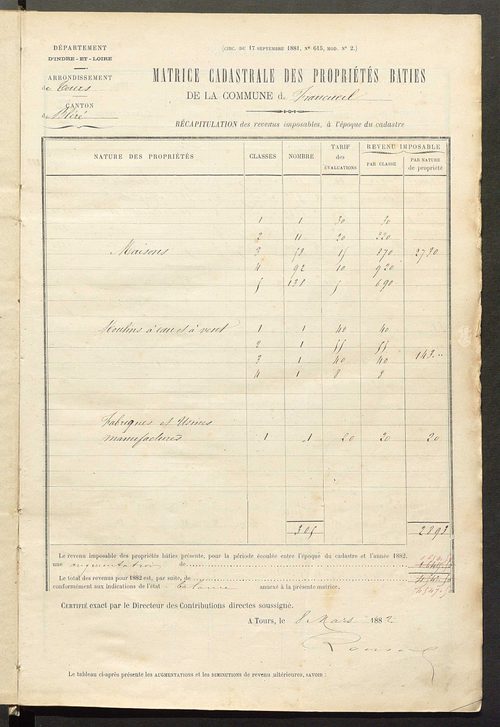 DÉPARTEMENT
D'INDRE-ET-LOIRE
ARRONDISSEMENT
de Tours
CANTON
de Bléré
(CIRC. DU 17 SEPTEMBRE 1881, N° 615, MOD. N° 2.)
MATRICE CADASTRALE DES PROPRIÉTÉS BATIES
DE LA COMMUNE d Francueil
RÉCAPITULATION des revenus imposables, à l'époque du cadastre
NATURE DES PROPRIÉTÉS CLASSES NOMBRE TARIF des ÉVALUATIONS REVENU IMPOSABLE
PAR CLASSE PAR NATURE de propriété
1 1 30 30
2 11 20 220
Maisons 3 58 15 870 2730
4 92 10 920
5 138 5 690
Moulins à eau et à vent 1 1 40 40
2 1 55 55
3 1 40 40 143
4 1 8 8
Fabriques et Usines
manufactures 1 1 20 20 20
305 2893
Le revenu imposable des propriétés bâties présente, pour la période écoulée entre l'époque du cadastre et l'année 1882,
une augmentation de
Le total des revenus pour 1882 est, par suite, de
conformément aux indications de l'état annexé à la présente matrice.
CERTIFIÉ exact par le Directeur des Contributions directes soussigné.
A Tours, le 8 Mars 1882
Le tableau ci-après présente les AUGMENTATIONS et les DIMINUTIONS de revenu ultérieures, SAVOIR :